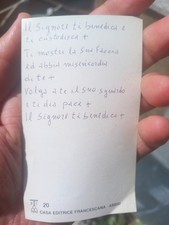 Il Signore ti benedica e
ti custodisca +
Ti mostri la Sua faccia
ed abbia misericordia
di te +
Volga a te il suo sguardo
e ti dia pace +
Il Signore ti benedica +
20
CASA EDITRICE FRANCESCANA